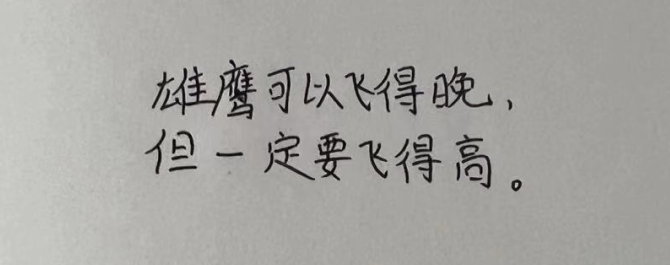 雄鹰可以飞得晚，
但一定要飞得高。